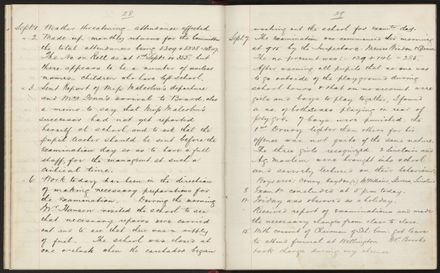 28
Sept 1. Weather threatening. attendance affected
" 2. Made up monthly returns for the Committee
the total attendances being
The No on Roll as at 1st Sept. is 255. but
there appears to be a number of useless
names, children who have left school.
" 3. Sent Report of Miss departure
and Miss arrival to Board, also
a memo to say that Miss
successor had not yet reported
herself at school and to ask that the
pupil teacher should be sent before the
examination day so as to have a full
staff, for the management at such a
critical time.
" 6. Work today has been in the direction
of making necessary preparations for
the Examination. During the morning
Mr visited the school to see
that necessary repairs were carried
out and to see that there was a supply
of fuel. The school was closed at
one o'clock when the caretaker began
29
washing out the school for exam day.
Sept 7. The Examination was commenced this morning
at 9.15 by the Inspectors
The no present was:
After warning all pupils that no one was
to go outside of the playground during
school hours & that on no account were
girls and boys to play together, I found
a no. of children playing in rear of
playgd. 7 boys were punished, the
1st lighter than others for his
offence was not quite of the same nature.
The three girls recognised
were brought into school
and severely lectured on their behaviour.
8. Exam concluded at 5 pm today.
10. Friday was observed as a holiday.
Received report of Examinations and made
the necessary changes from class to class.
15. With consent of Chairman of Sch. Com. got leave
to attend funeral at Wellington
took charge during my absence